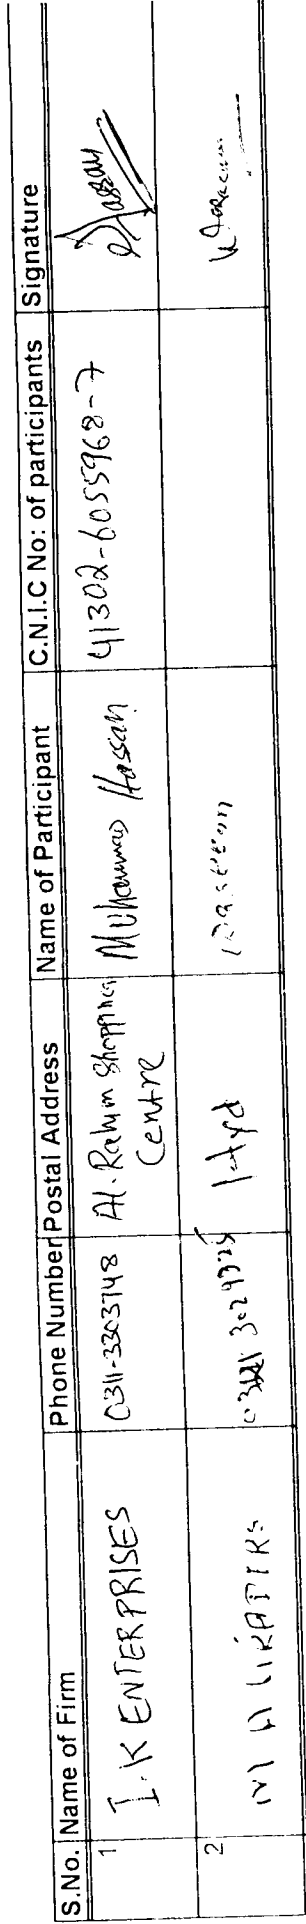 S.No. Name of Firm Phone Number Postal Address Name of Participant C.N.I.C No: of participants Signature
1 I.K ENTERPRISES 0311-3303748 Al-Rahim Shopping Centre Muhammad Hassan 41302-6055968-7 Hassan
2 Hyd Waseem